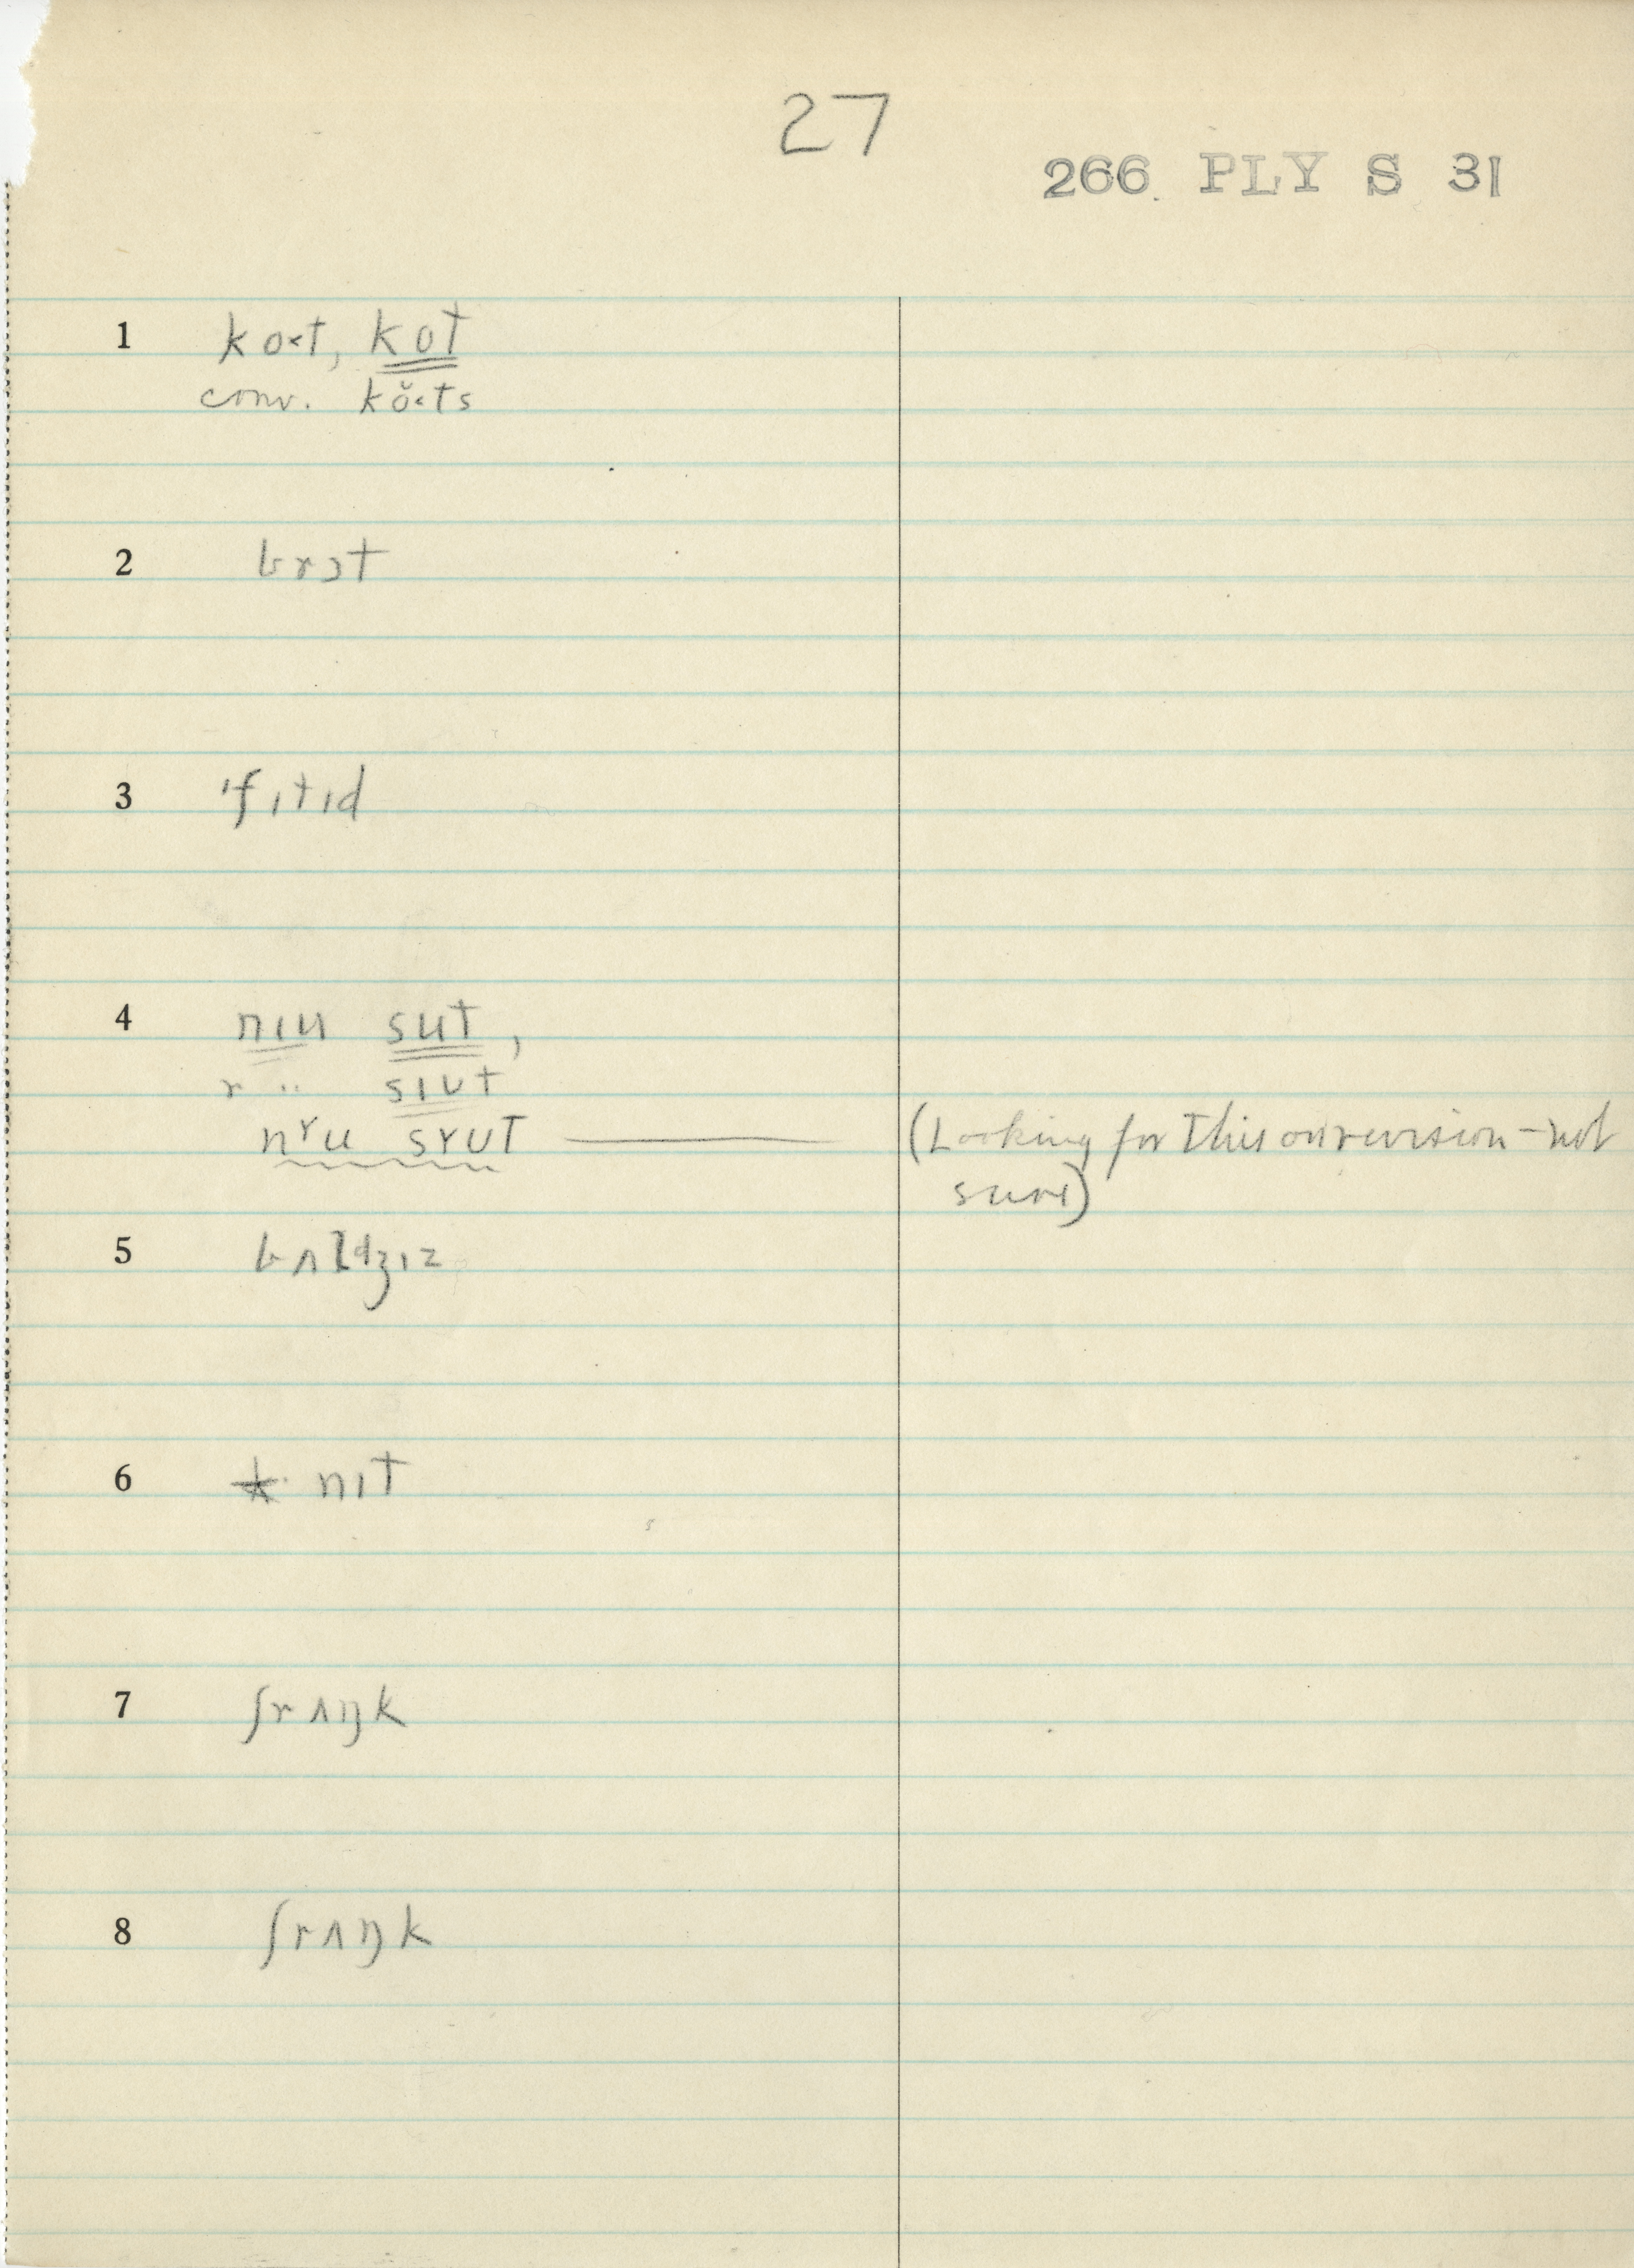 27
266 PLY S 31
1 ko˂t, kot
conv. kŏ˂ts
2 brɔt
3 'fɪtɪd
4 nɪu sut,
r " sɪut
nɤu sɤut — (Looking for this on revision – not
sure)
5 bʌldʒɪz
6 nɪt
7 ʃrʌŋk
8 ʃrʌŋk